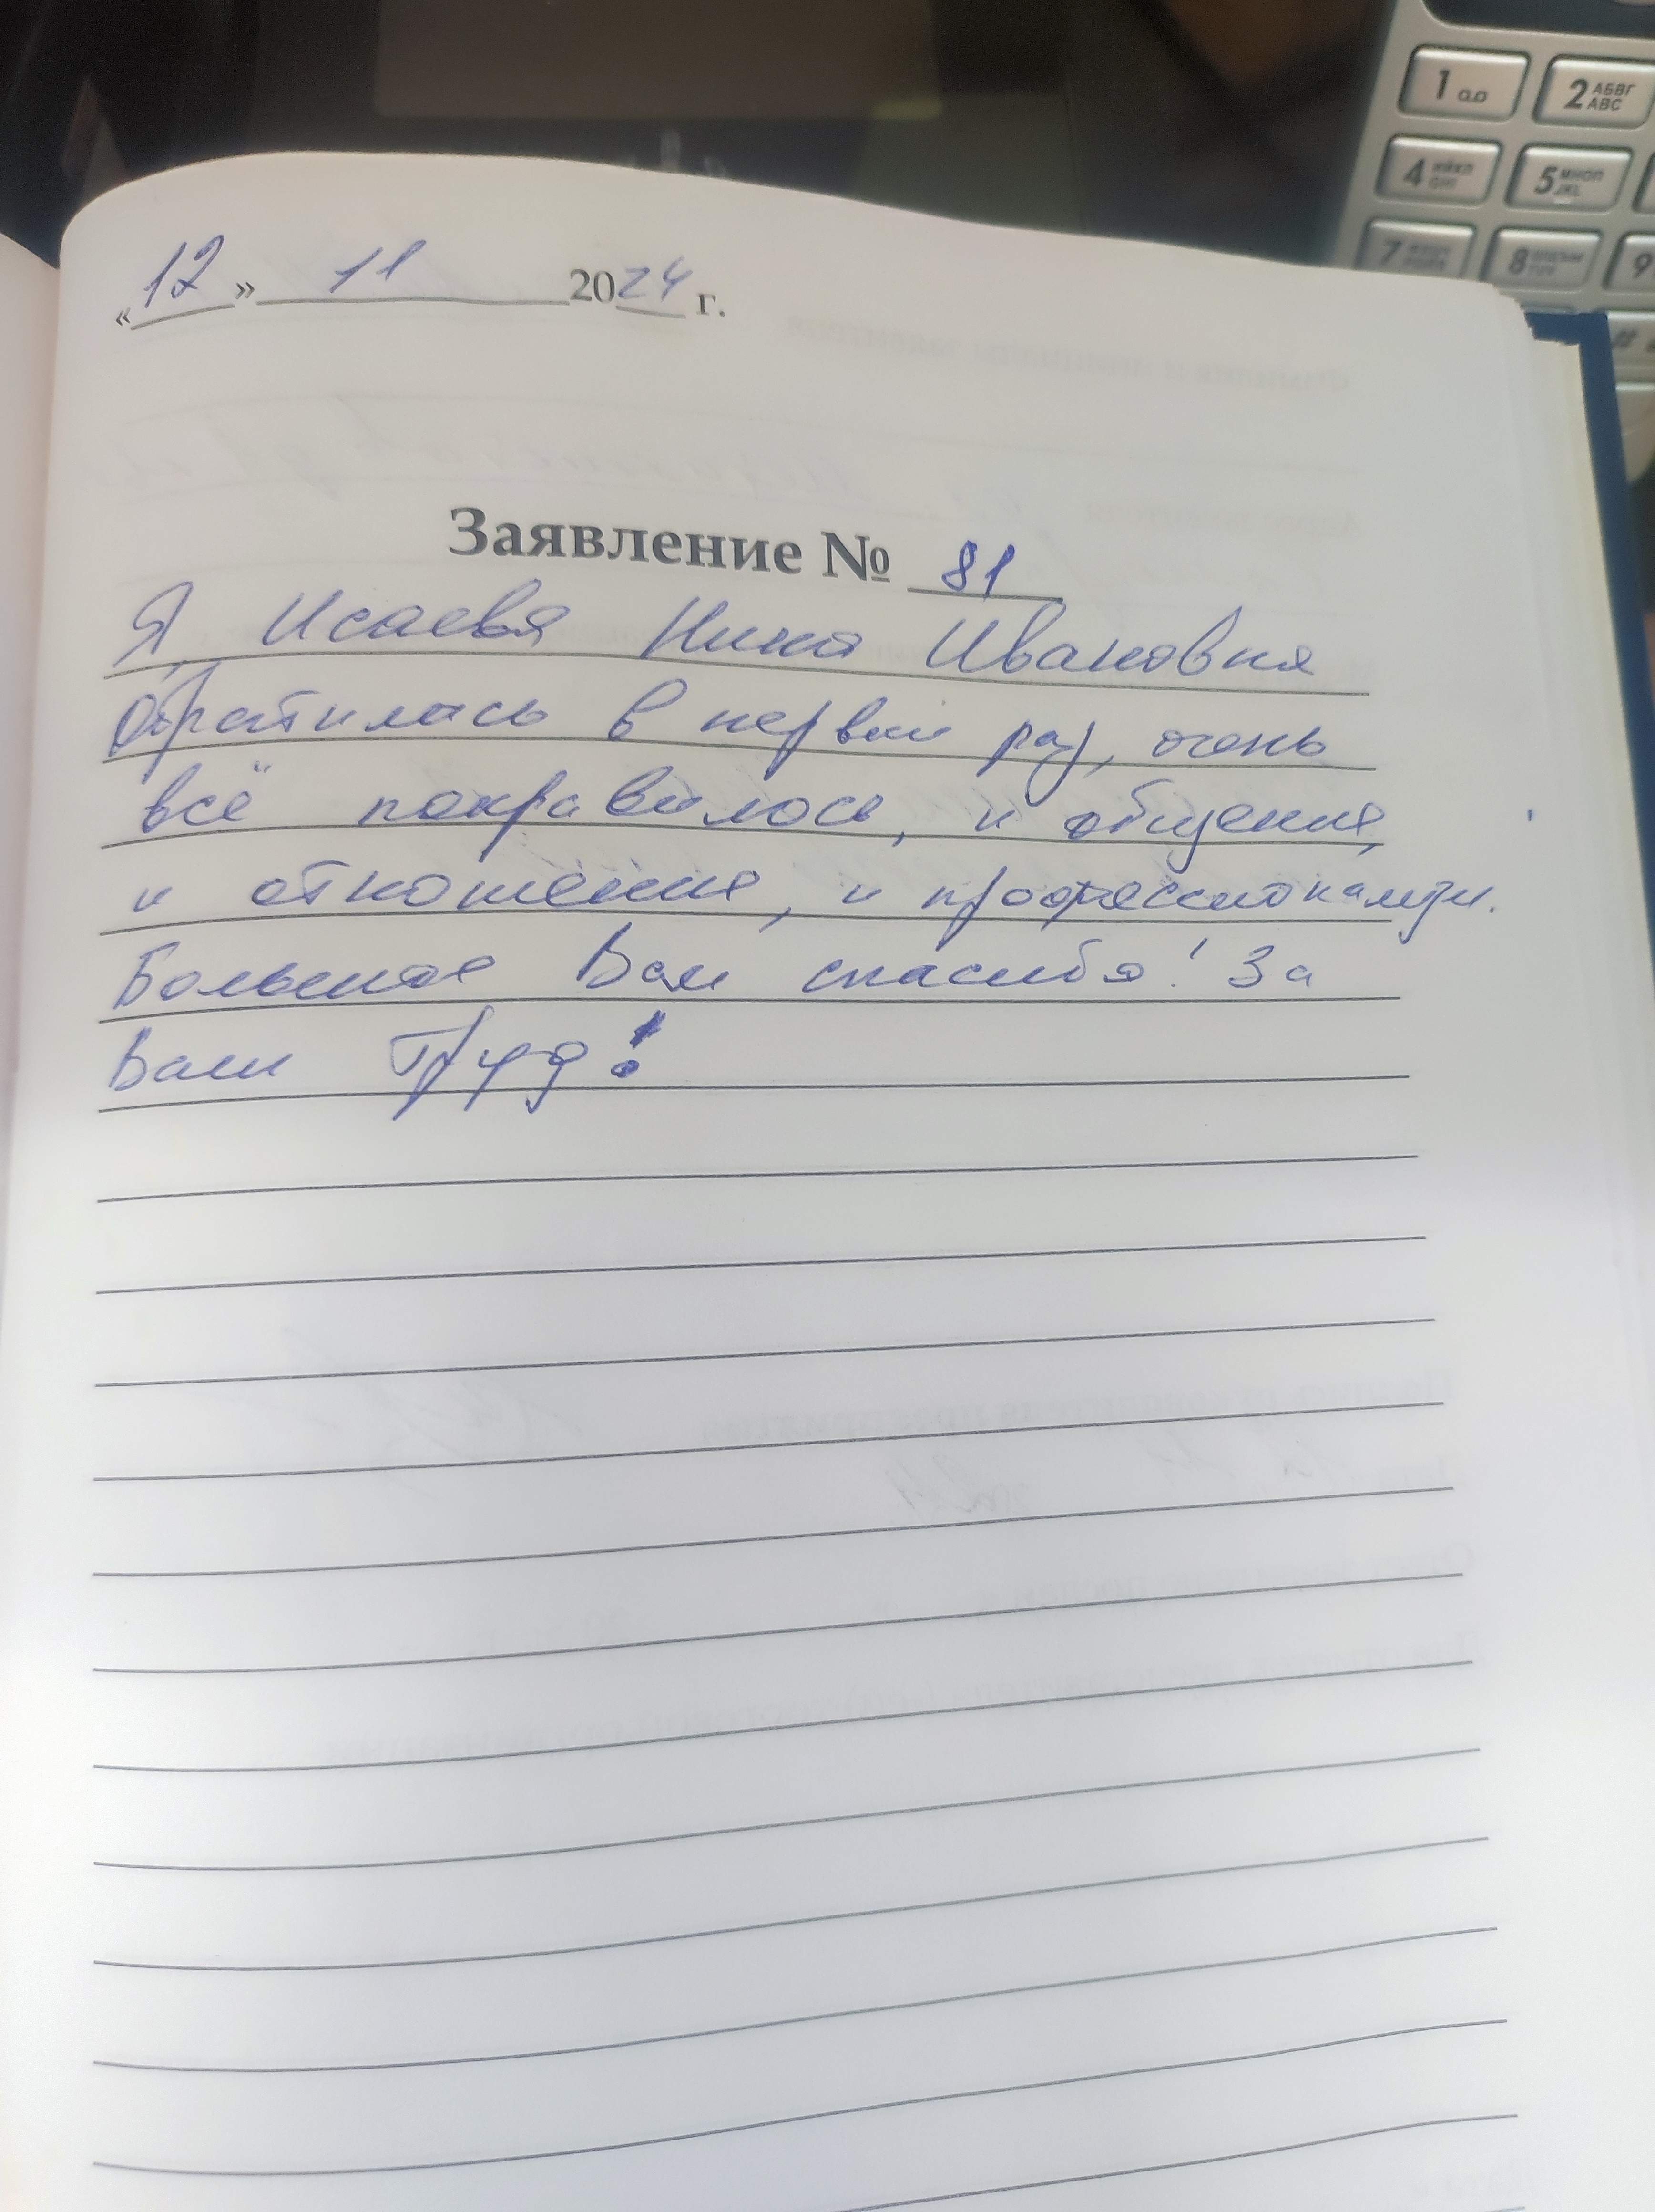 «12» 11 2024 г.
Заявление № 81
Я, Исаева Нина Ивановна
обратилась в первый раз, очень
всё понравилось, и общение,
и отношение, и профессионализм.
Большое Вам спасибо! За
Ваш Труд!
1
2 АБВГ ABC
4 ИЙКЛ GHI
5 МНОП JKL
7
8
9
#